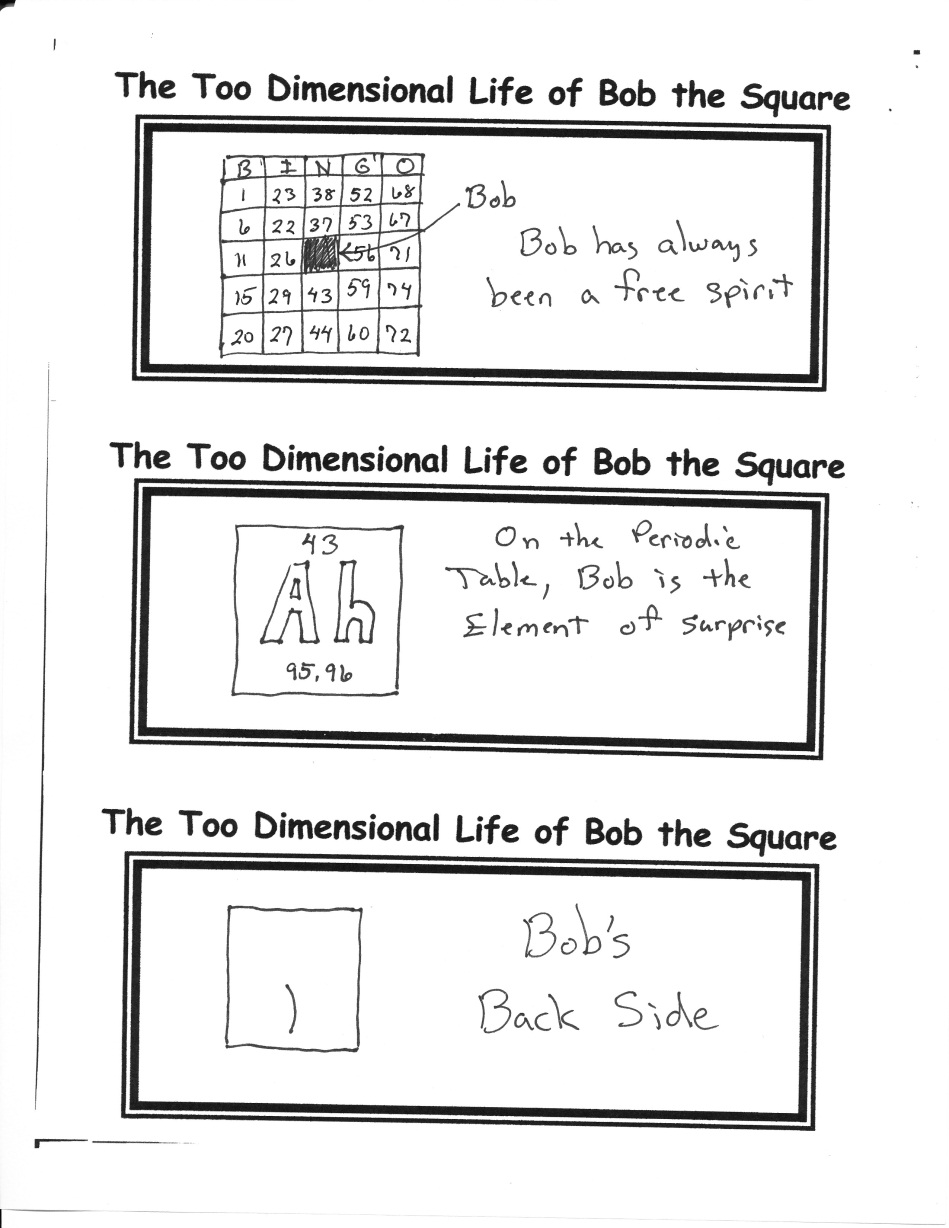 The Too Dimensional Life of Bob the Square
B I N G O
1 23 38 52 68
6 22 37 53 67
11 26 56 71
15 29 43 59 74
20 27 44 60 72
Bob
Bob has always
been a free spirit
The Too Dimensional Life of Bob the Square
43
Ah
95.96
On the Periodic
Table, Bob is the
Element of surprise
The Too Dimensional Life of Bob the Square
)
Bob's
Back Side